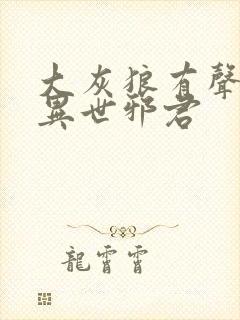 大灰狼有聲
異世邪君
龍霄霄